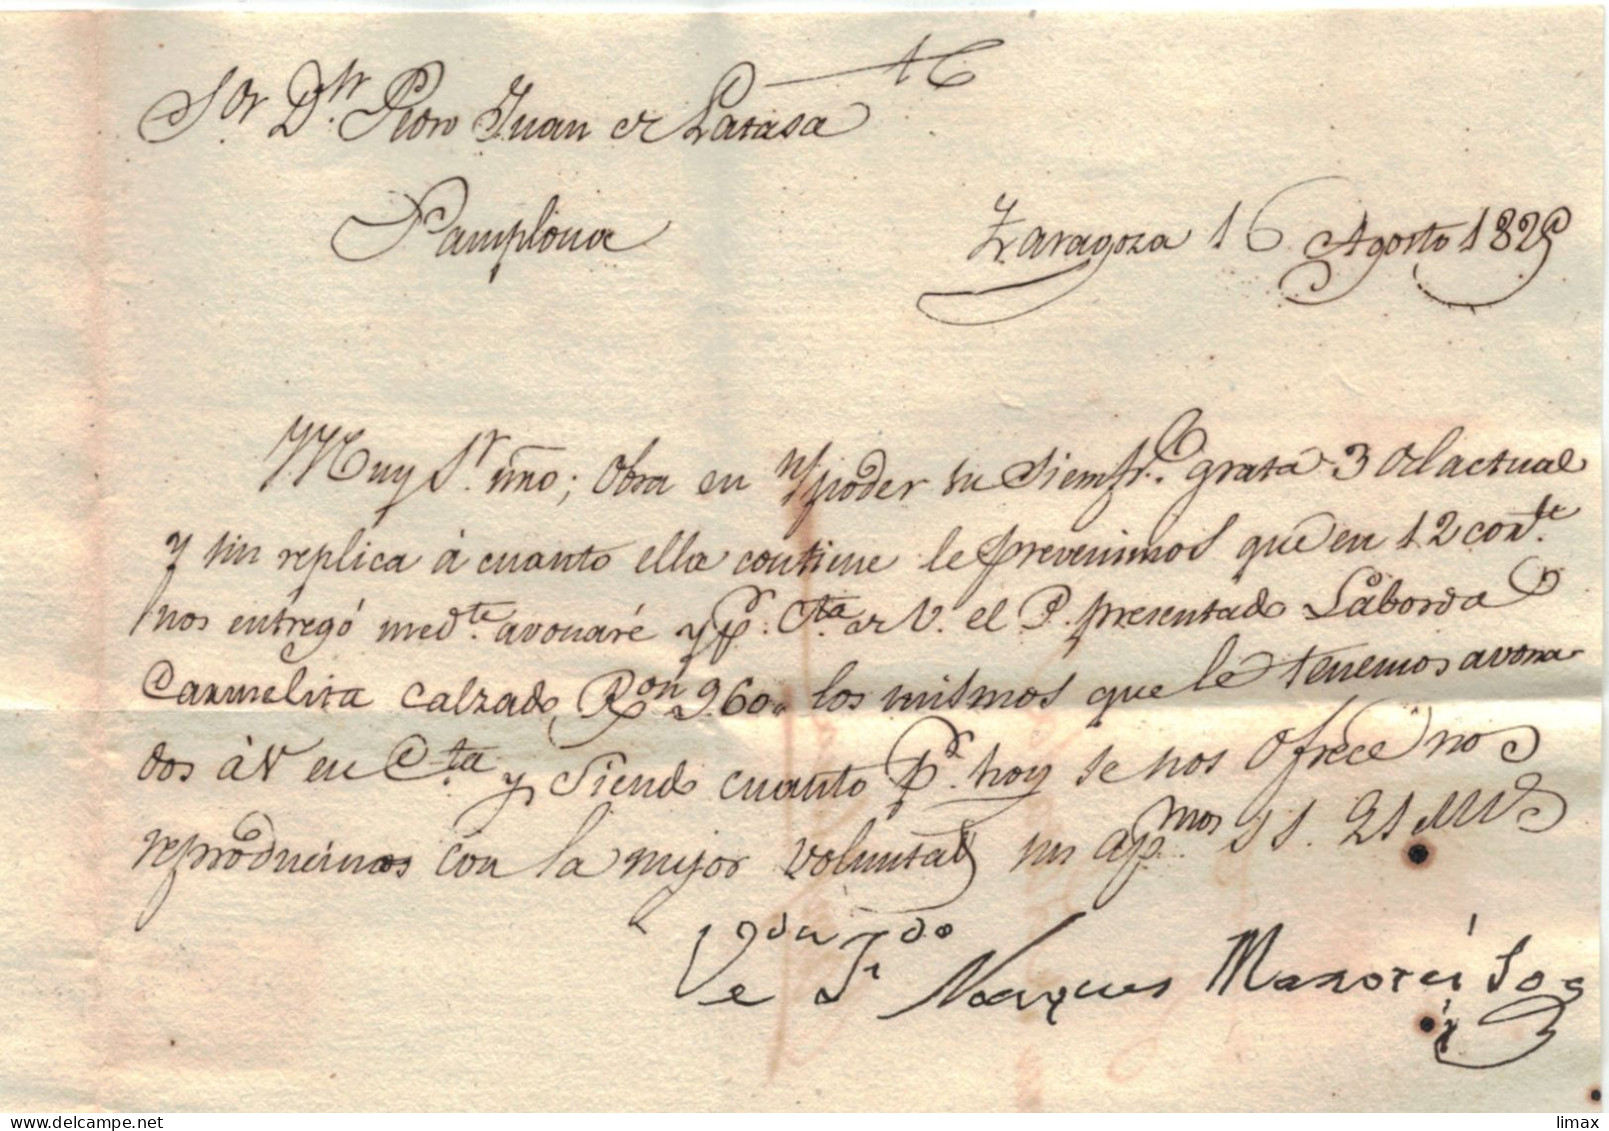 Sor. Dn. Pedro Juan de Latasa
Pamplona
Zaragoza 16 Agosto 1829
Muy Sr. mño; Obra en n poder su siempre. grata 3 del actual
y sin replica á cuanto ella contiene le prevenimos que en 12 corte.
nos entregó medte. avonaré y pr. Cta de V. el P. presentado Laborda
Carmelita calzado, Ron 960,, los mismos que le tenemos avona-
dos á V en Cta y siendo cuanto pr. hoy se nos ofrece nos
reproducimos con la mejor voluntad sus apmos. SS. Q S M B
Vda e Jo
limax